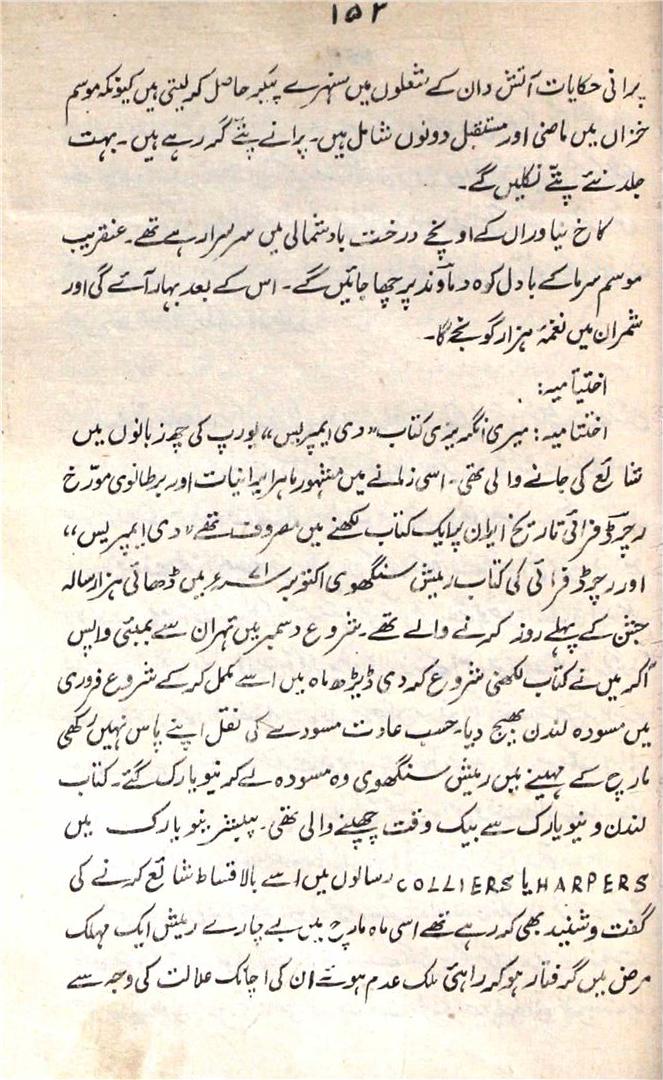 ۱۵۲
پرانی حکایات آتش دان کے شعلوں میں سنہرے پیکر حاصل کر لیتی ہیں کیونکہ موسم
خزاں میں ماضی اور مستقبل دونوں شامل ہیں۔ پرانے پتّے گر رہے ہیں۔ بہت
جلد نئے پتّے نکلیں گے۔
کاخ نیاوراں کے اونچے درخت باد شمالی میں سرسرا رہے تھے۔ عنقریب
موسم سرما کے بادل کوہ دماوند پر چھا جائیں گے۔ اس کے بعد بہار آئے گی اور
شمران میں نغمۂ ہزار گونجے گا۔
اختتامیہ:
اختتامیہ: میری انگریزی کتاب "دی ایمپریس" یورپ کی چھ زبانوں میں
شائع کی جانے والی تھی۔ اسی زمانے میں مشہور ماہر ایرانیات اور برطانوی مورّخ
رچرڈ فرائی تاریخ ایران پر ایک کتاب لکھنے میں مصروف تھے "دی ایمپریس"
اور رچرڈ فرائی کی کتاب رمیش سنگھوی اکتوبر ۷۱ء میں ڈھائی ہزار سالہ
جشن کے پہلے روز کرنے والے تھے۔ شروع دسمبر میں تہران سے بمبئی واپس
آکر میں نے کتاب لکھنی شروع کر دی ڈیڑھ ماہ میں اسے مکمل کر کے شروع فروری
میں مسودہ لندن بھیج دیا۔ حسب عادت مسودے کی نقل اپنے پاس نہیں رکھی
مارچ کے مہینے میں رمیش سنگھوی وہ مسودہ لے کر نیویارک گئے۔ کتاب
لندن و نیویارک سے بیک وقت چھپنے والی تھی۔ پبلشر نیویارک میں
HARPERS یا COLLIERS رسالوں میں اسے بالاقساط شائع کرنے کی
گفت و شنید بھی کر رہے تھے اسی ماہ مارچ میں بے چارے رمیش ایک مہلک
مرض میں گرفتار ہو کر راہئی ملک عدم ہوئے ان کی اچانک علالت کی وجہ سے